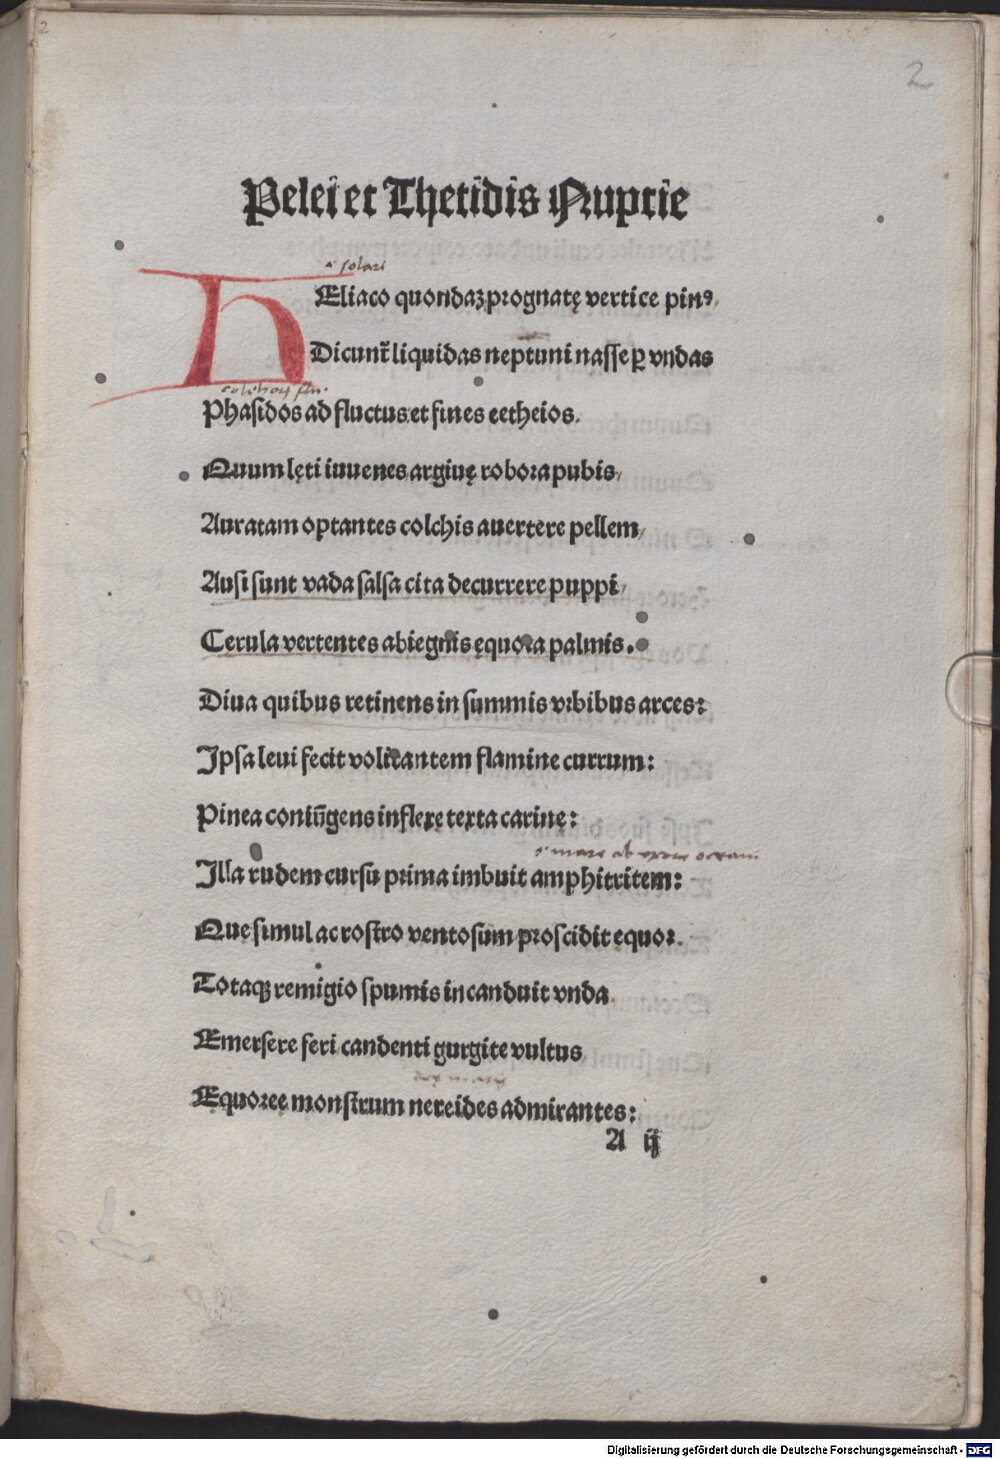 2
2
Pelei et Thetidis Nuptie
.i. solari
HEliaco quondaꝫ prognatę vertice pinꝰ,
Dicunt̃ liquidas neptuni nasse ꝑ vndas
colchoꝝ flu.
Phasidos ad fluctus: et fines eetheios.
Quum lęti iuuenes argiuę robora pubis,
Auratam optantes colchis auertere pellem,
Ausi sunt vada salsa cita decurrere puppi,
Cerula vertentes abiegnis ęquora palmis.
Diua quibus retinens in summis vrbibus arces:
Ipsa leui fecit volitantem flamine currum:
Pinea coniūgens inflexe texta carinę:
.i. mare
Illa rudem cursu prima imbuit amphitritem:
Que simul ac rostro ventosum proscidit equor.
Totaqꝫ remigio spumis incanduit vnda
Emersere feri candenti gurgite vultus
Equoreę monstrum nereides admirantes:
A ij
Digitalisierung gefördert durch die Deutsche Forschungsgemeinschaft - DFG